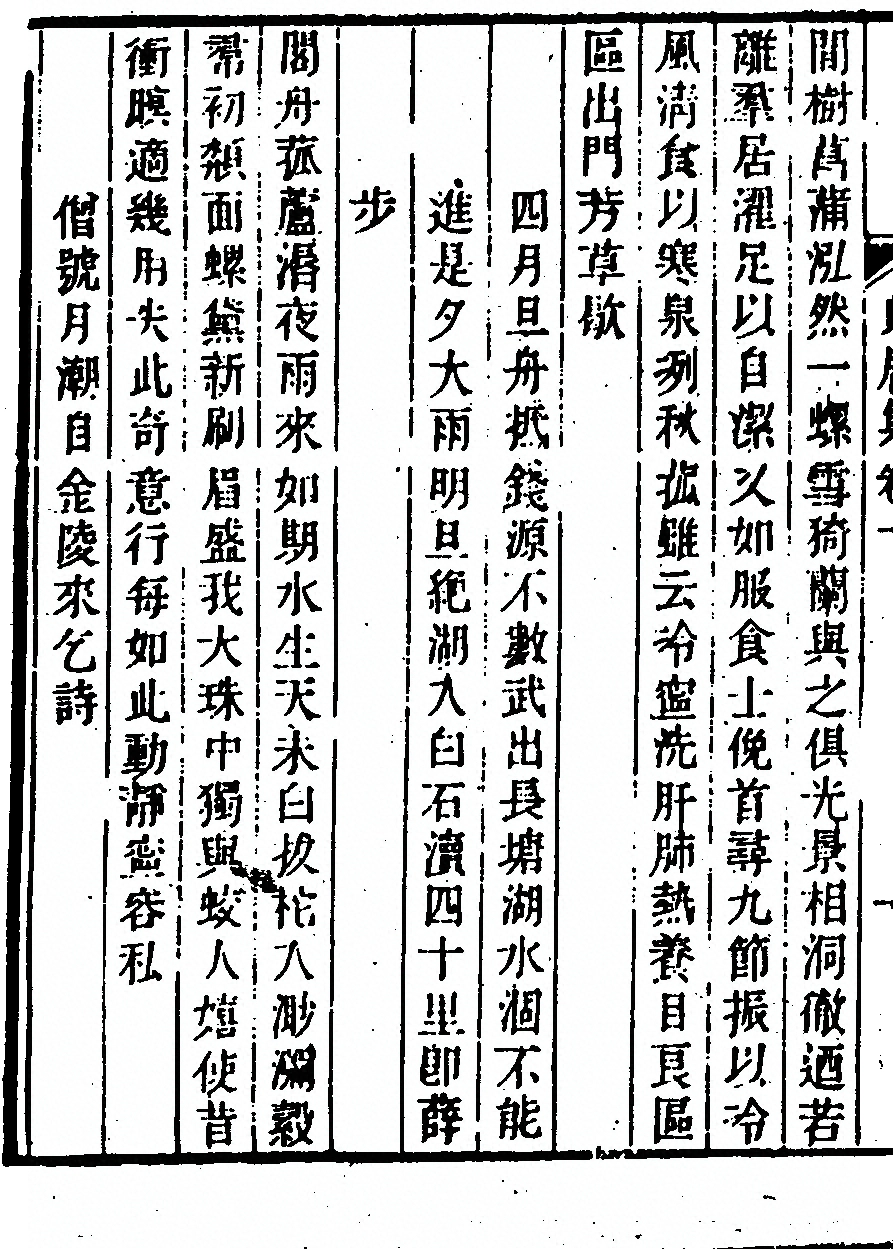 間樹菖蒲泓然一螺雪猗蘭與之俱光景相洞徹迺若
離羣居濯足以自潔又如服食士俛首尋九節振以冷
風清食以寒泉冽秋菰雖云冷寧洗肝肺熱養目良區
區出門芳草歇
四月旦舟抵錢源不數武出長塘湖水涸不能
進是夕大雨明旦絶湖入白石瀆四十里卽薛
步
閣舟菰蘆潯夜雨來如期水生天未白拔柁入渺瀰縠
帬初頮面螺黛新刷眉盛我大珠中獨與蛟人嬉使昔
衝暝適幾用失此奇意行每如此動靜寧容私
僧號月潮自金陵來乞詩